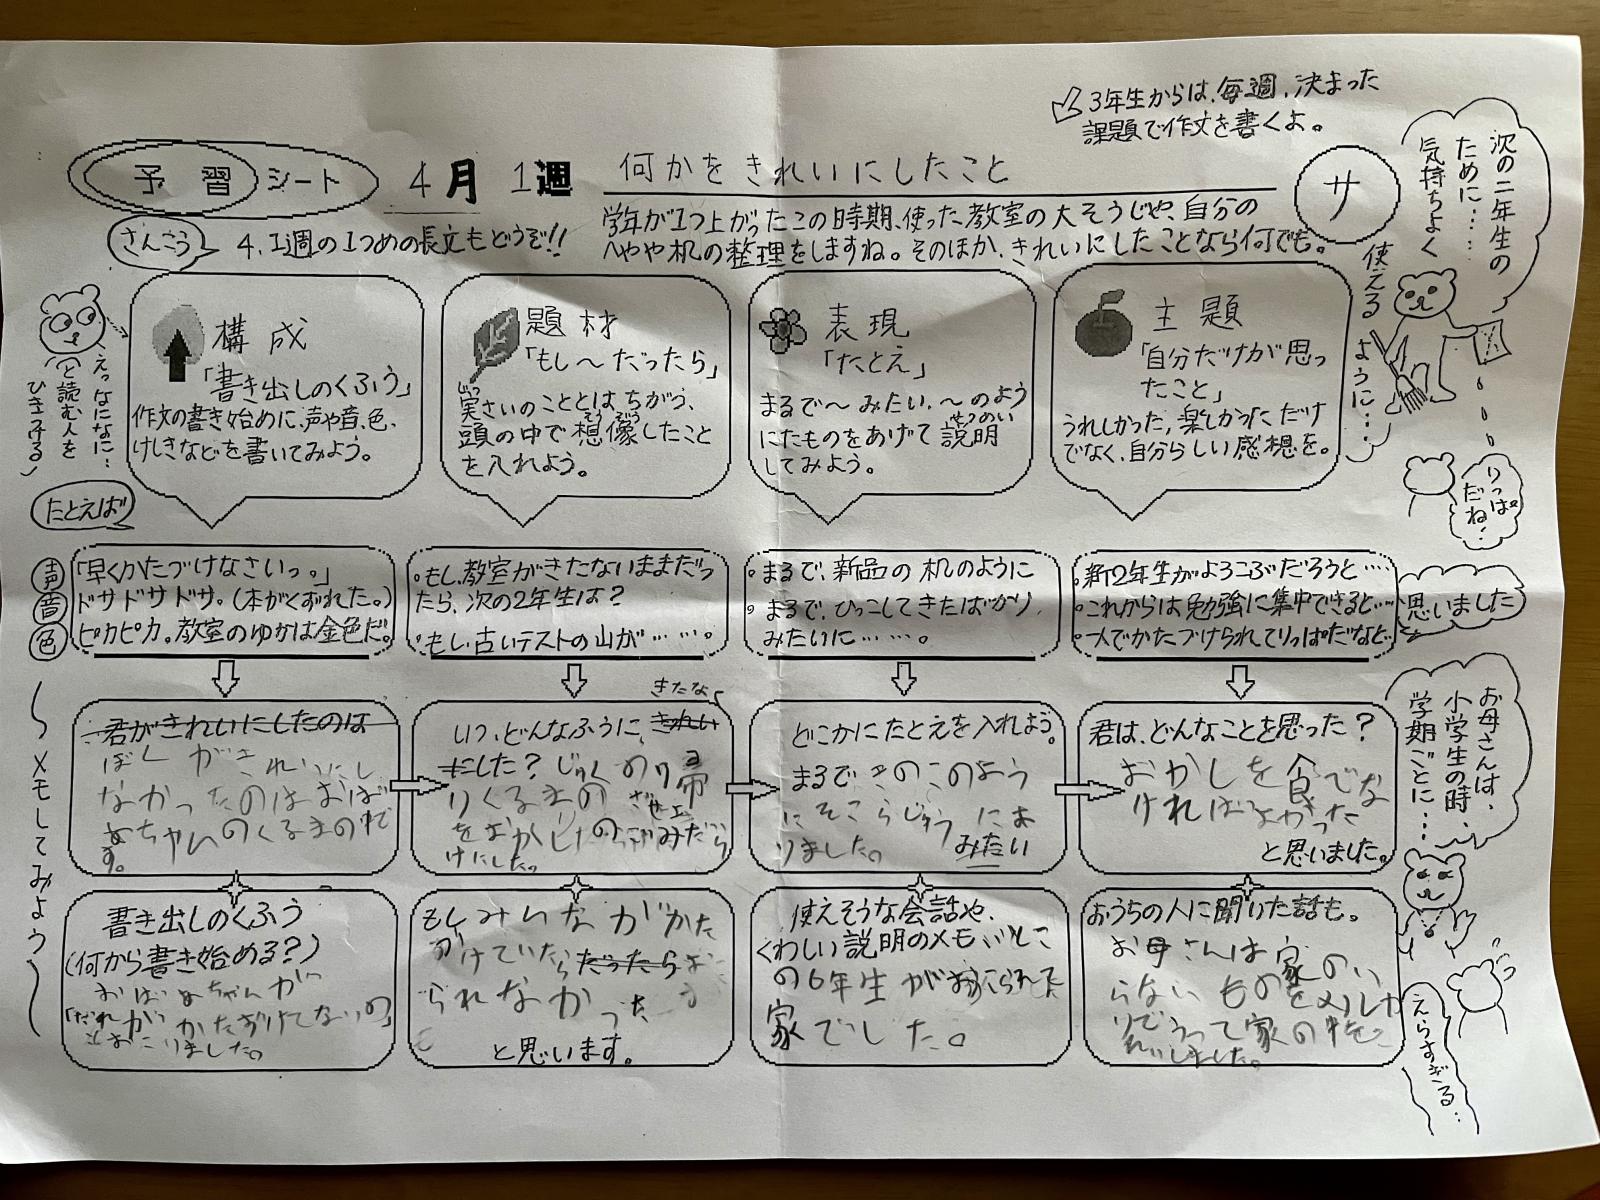 3年生からは、毎週、決まった
課題で作文を書くよ。
予習シート 4月 1週 何かをきれいにしたこと サ
さんこう 4.1週の1つめの長文もどうぞ!!
学年が1つ上がったこの時期、使った教室の大そうじや、自分の
へやや机の整理をしますね。そのほか、きれいにしたことなら何でも。
次の二年生の
ために……
気持ちよく
使える
ように…
りっぱ
だね…
えっなになに…
と読む人を
ひきつける
構成
「書き出しのくふう」
作文の書き始めに、声や音、色、
けしきなどを書いてみよう。
題材
「もし〜だったら」
実さいのこととはちがう、
じっ
頭の中で想像したこと
そうぞう
を入れよう。
表現
「たとえ」
まるで〜みたい、〜のよう
にたものをあげて説明
せつめい
してみよう。
主題
「自分だけが思っ
たこと」
うれしかった、楽しかっただけ
でなく、自分らしい感想を。
たとえば
声
音
色
「早くかたづけなさいっ。」
ドサドサドサ。(本がくずれた。)
ピカピカ。教室のゆかは金色だ。
・もし、教室がきたないままだっ
たら、次の2年生は?
・もし、古いテストの山が……。
・まるで、新品の机のように
・まるで、ひっこしてきたばかり
みたいに……。
・新2年生がよろこぶだろうと…
・これからは勉強に集中できると…
・一人でかたづけられてりっぱだなと…
思いました
〜メモしてみよう〜
君がきれいにしたのは
ぼくがきれいにし
なかったのはおば
あちゃんのくるまの
です。
いつ、どんなふうに、きれい
きたなく
にした?じゅくの帰
りくるまの
をおかしのごみだら
けにした。
どこかにたとえを入れよう。
まるできのこのよう
にそこらじゅうにあ
りました。 みたい
君は、どんなことを思った?
おかしを食べな
ければよかった
と思いました。
お母さんは、
小学生の時、
学期ごとに…
書き出しのくふう
(何から書き始める?)
おばあちゃんが
「だれがかたづけてないの」
とおこりました。
もしみんながかた
づけていたらだったらおこ
られなかった
と思います。
使えそうな会話や、
くわしい説明のメモ
の6年生が
家でした。
おうちの人に聞いた話も。
お母さんは家のい
らないものをメルカ
リでうって家の中をき
れいにしました。
えらすぎる…